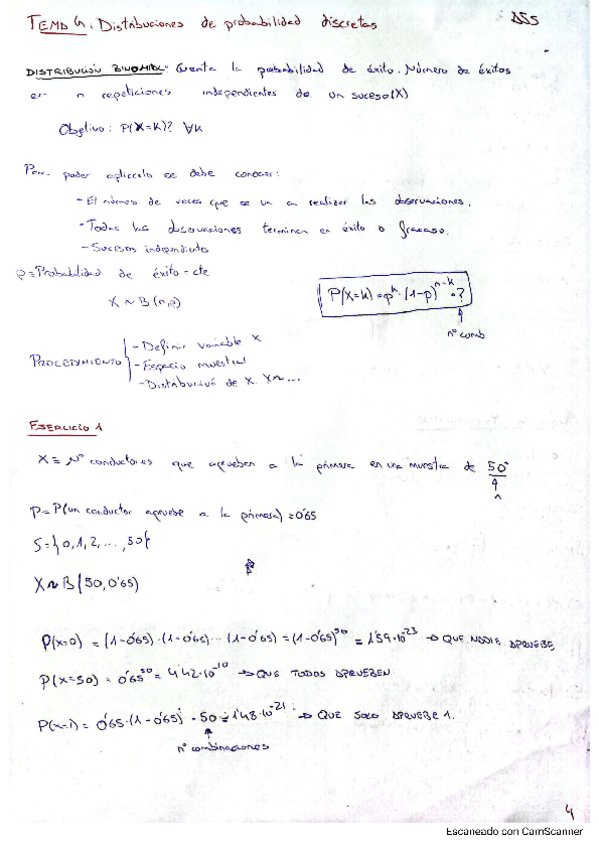 TEMA 4. Distribuciones de probabilidad discretas
DISTRIBUCIÓN BINOMIAL: Cuenta la probabilidad de éxito. Número de éxitos
en n repeticiones independientes de un suceso (X)
Objetivo: P(X=k)? ∀k
Para poder aplicarlo se debe conocer:
- El número de veces que se va a realizar las observaciones.
- Todas las observaciones terminan en éxito o fracaso.
- Sucesos independientes
p = Probabilidad de éxito - cte
X ~ B(n,p)
P(X=k) = p^k · (1-p)^(n-k) · ?
nº comb
PROCEDIMIENTO
- Definir variable X
- Espacio muestral
- Distribución de X. X~...
EJERCICIO 1
X ≡ Nº conductores que aprueben a la primera en una muestra de 50
n
P = P(un conductor apruebe a la primera) = 0'65
S = {0,1,2,...,50}
X ~ B(50,0'65)
P(X=0) = (1-0'65)·(1-0'65)...(1-0'65) = (1-0'65)^50 = 1'59·10^-23 → QUE NADIE APRUEBE
P(X=50) = 0'65^50 = 4'42·10^-10 → QUE TODOS APRUEBEN
P(X=1) = 0'65·(1-0'65) · 50 = 1'48·10^-21 → QUE SOLO APRUEBE 1.
nº combinaciones
4
Escaneado con CamScanner